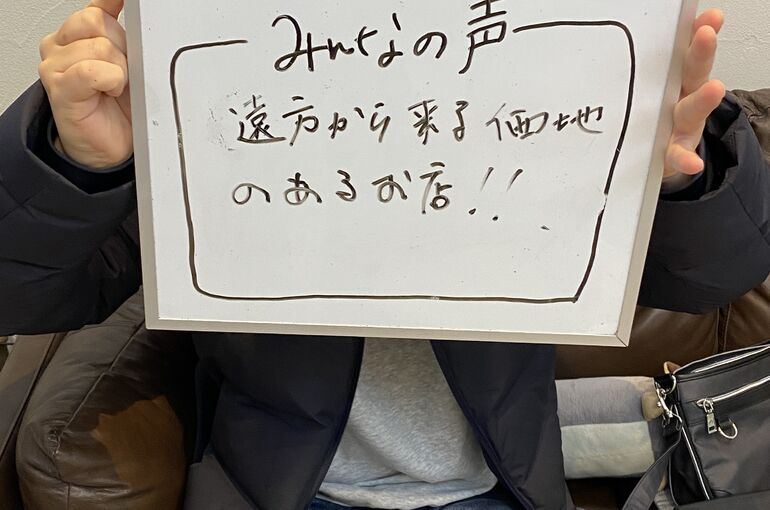 みんなの声
遠方から来る価地
のあるお店!!